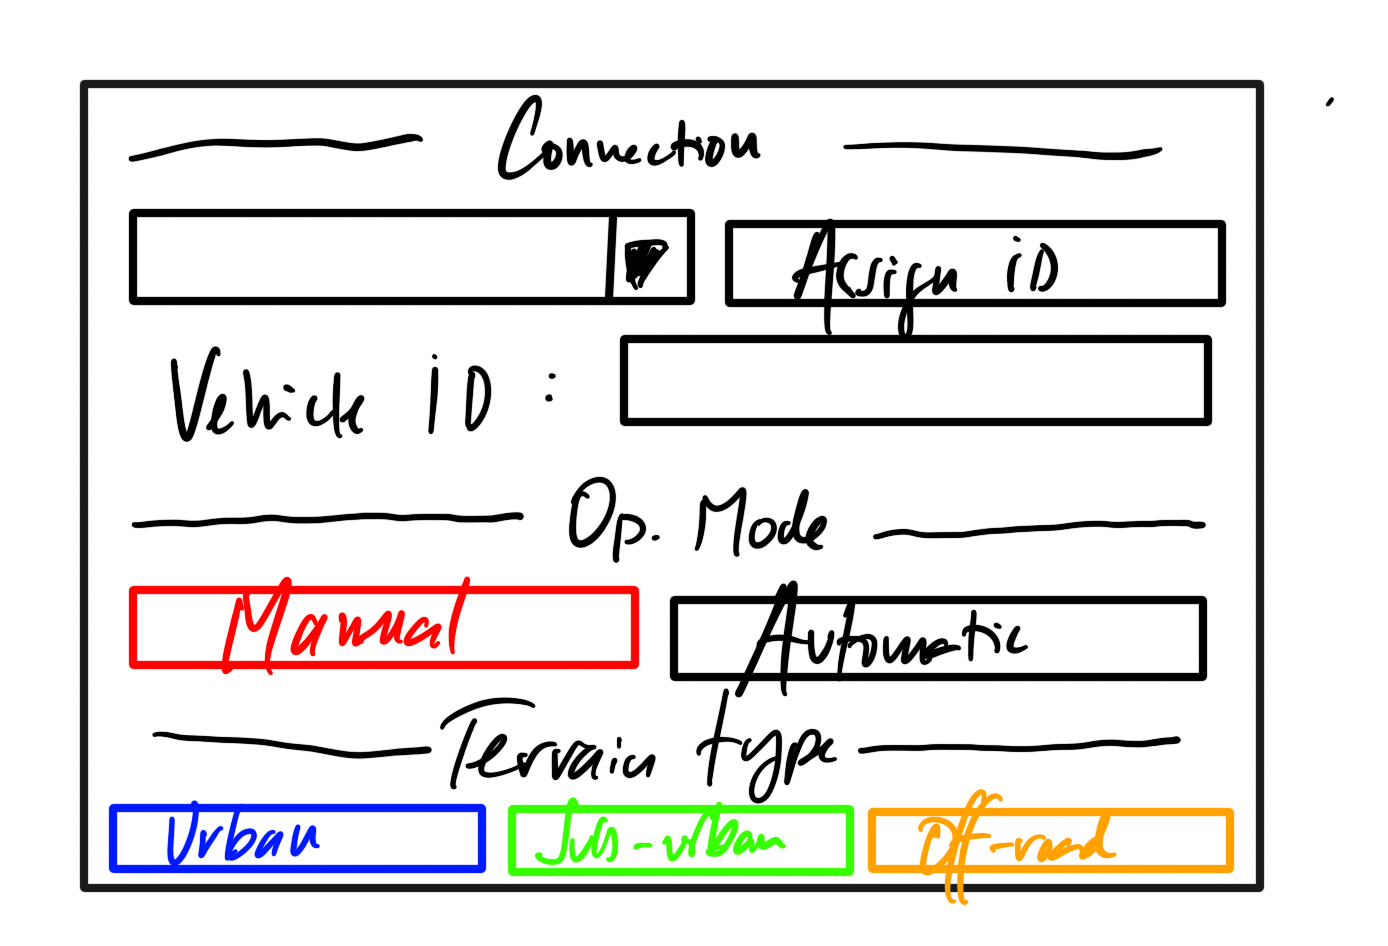 Connection
Assign iD
Vehicle iD :
Op. Mode
Manual
Automatic
Terrain type
Urban
Sub-urban
Off-road